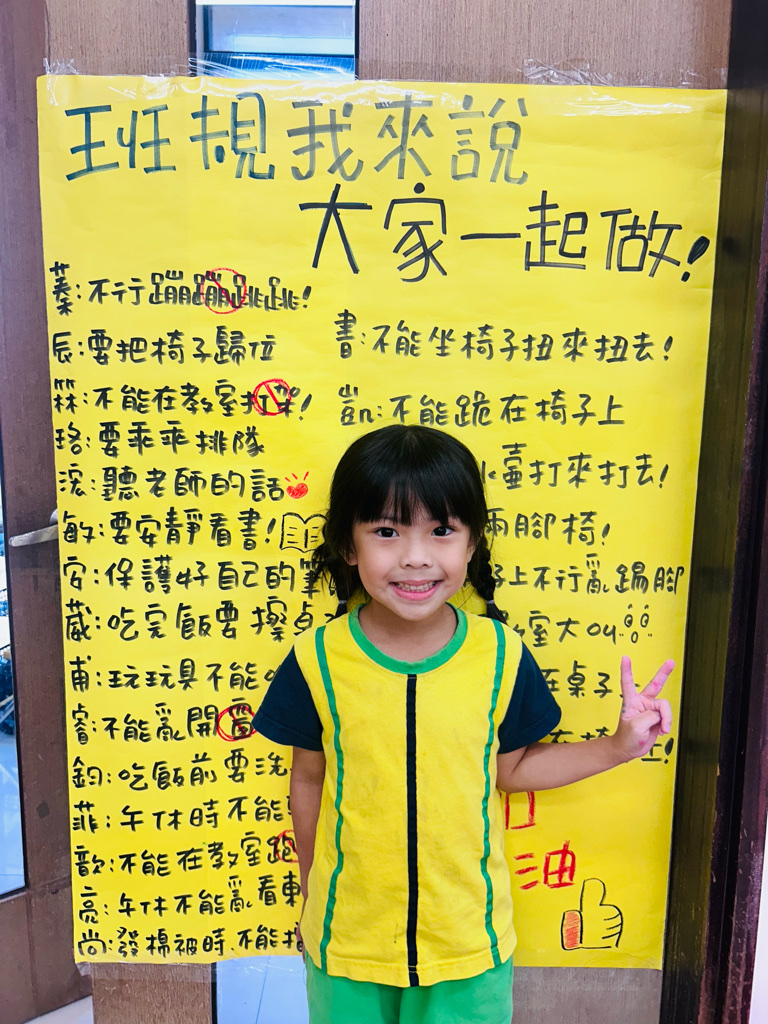 班規我來說
大家一起做!
蓁:不行蹦蹦跳跳!
辰:要把椅子歸位
箖:不能在教室打架!
珞:要乖乖排隊
浤:聽老師的話
敏:要安靜看書!
安:保護好自己的筆
葳:吃完飯要擦桌
甫:玩玩具不能
睿:不能亂開窗
鈞:吃飯前要洗
菲:午休時不能
歆:不能在教室跑
亮:午休不能亂看東
尚:發棉被時,不能
書:不能坐椅子扭來扭去!
凱:不能跪在椅子上
水壺打來打去!
兩腳椅!
子上不行亂踢腳
教室大ou
在桌子
在椅 上!
油